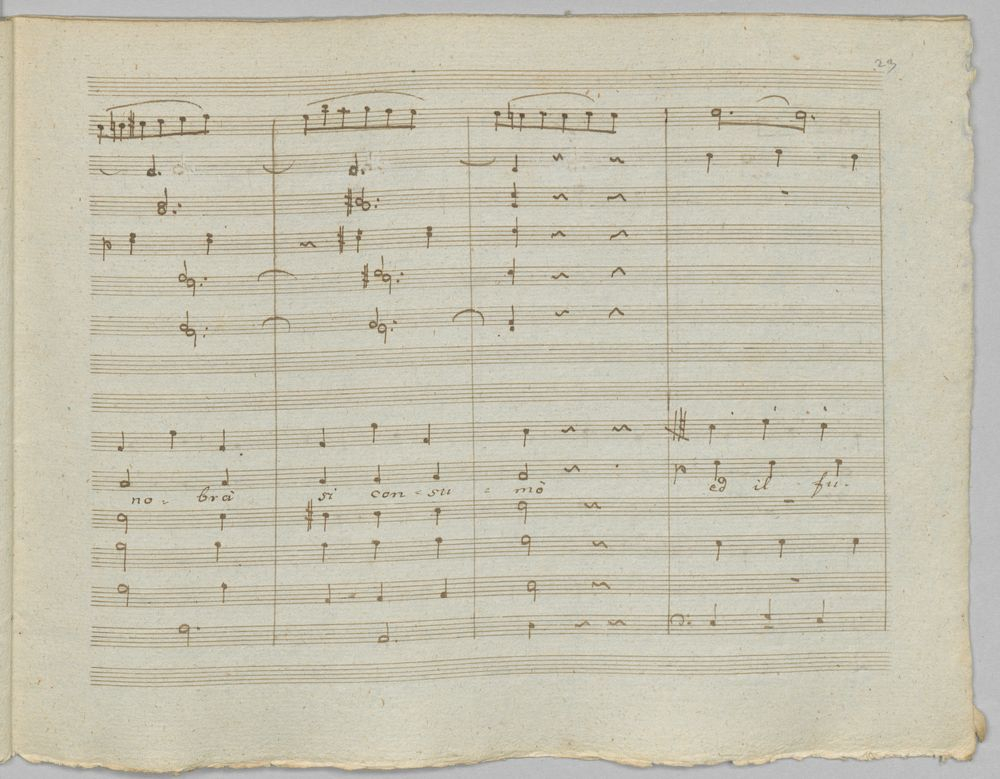 23
no - brà si con - su - mò ed il fu -